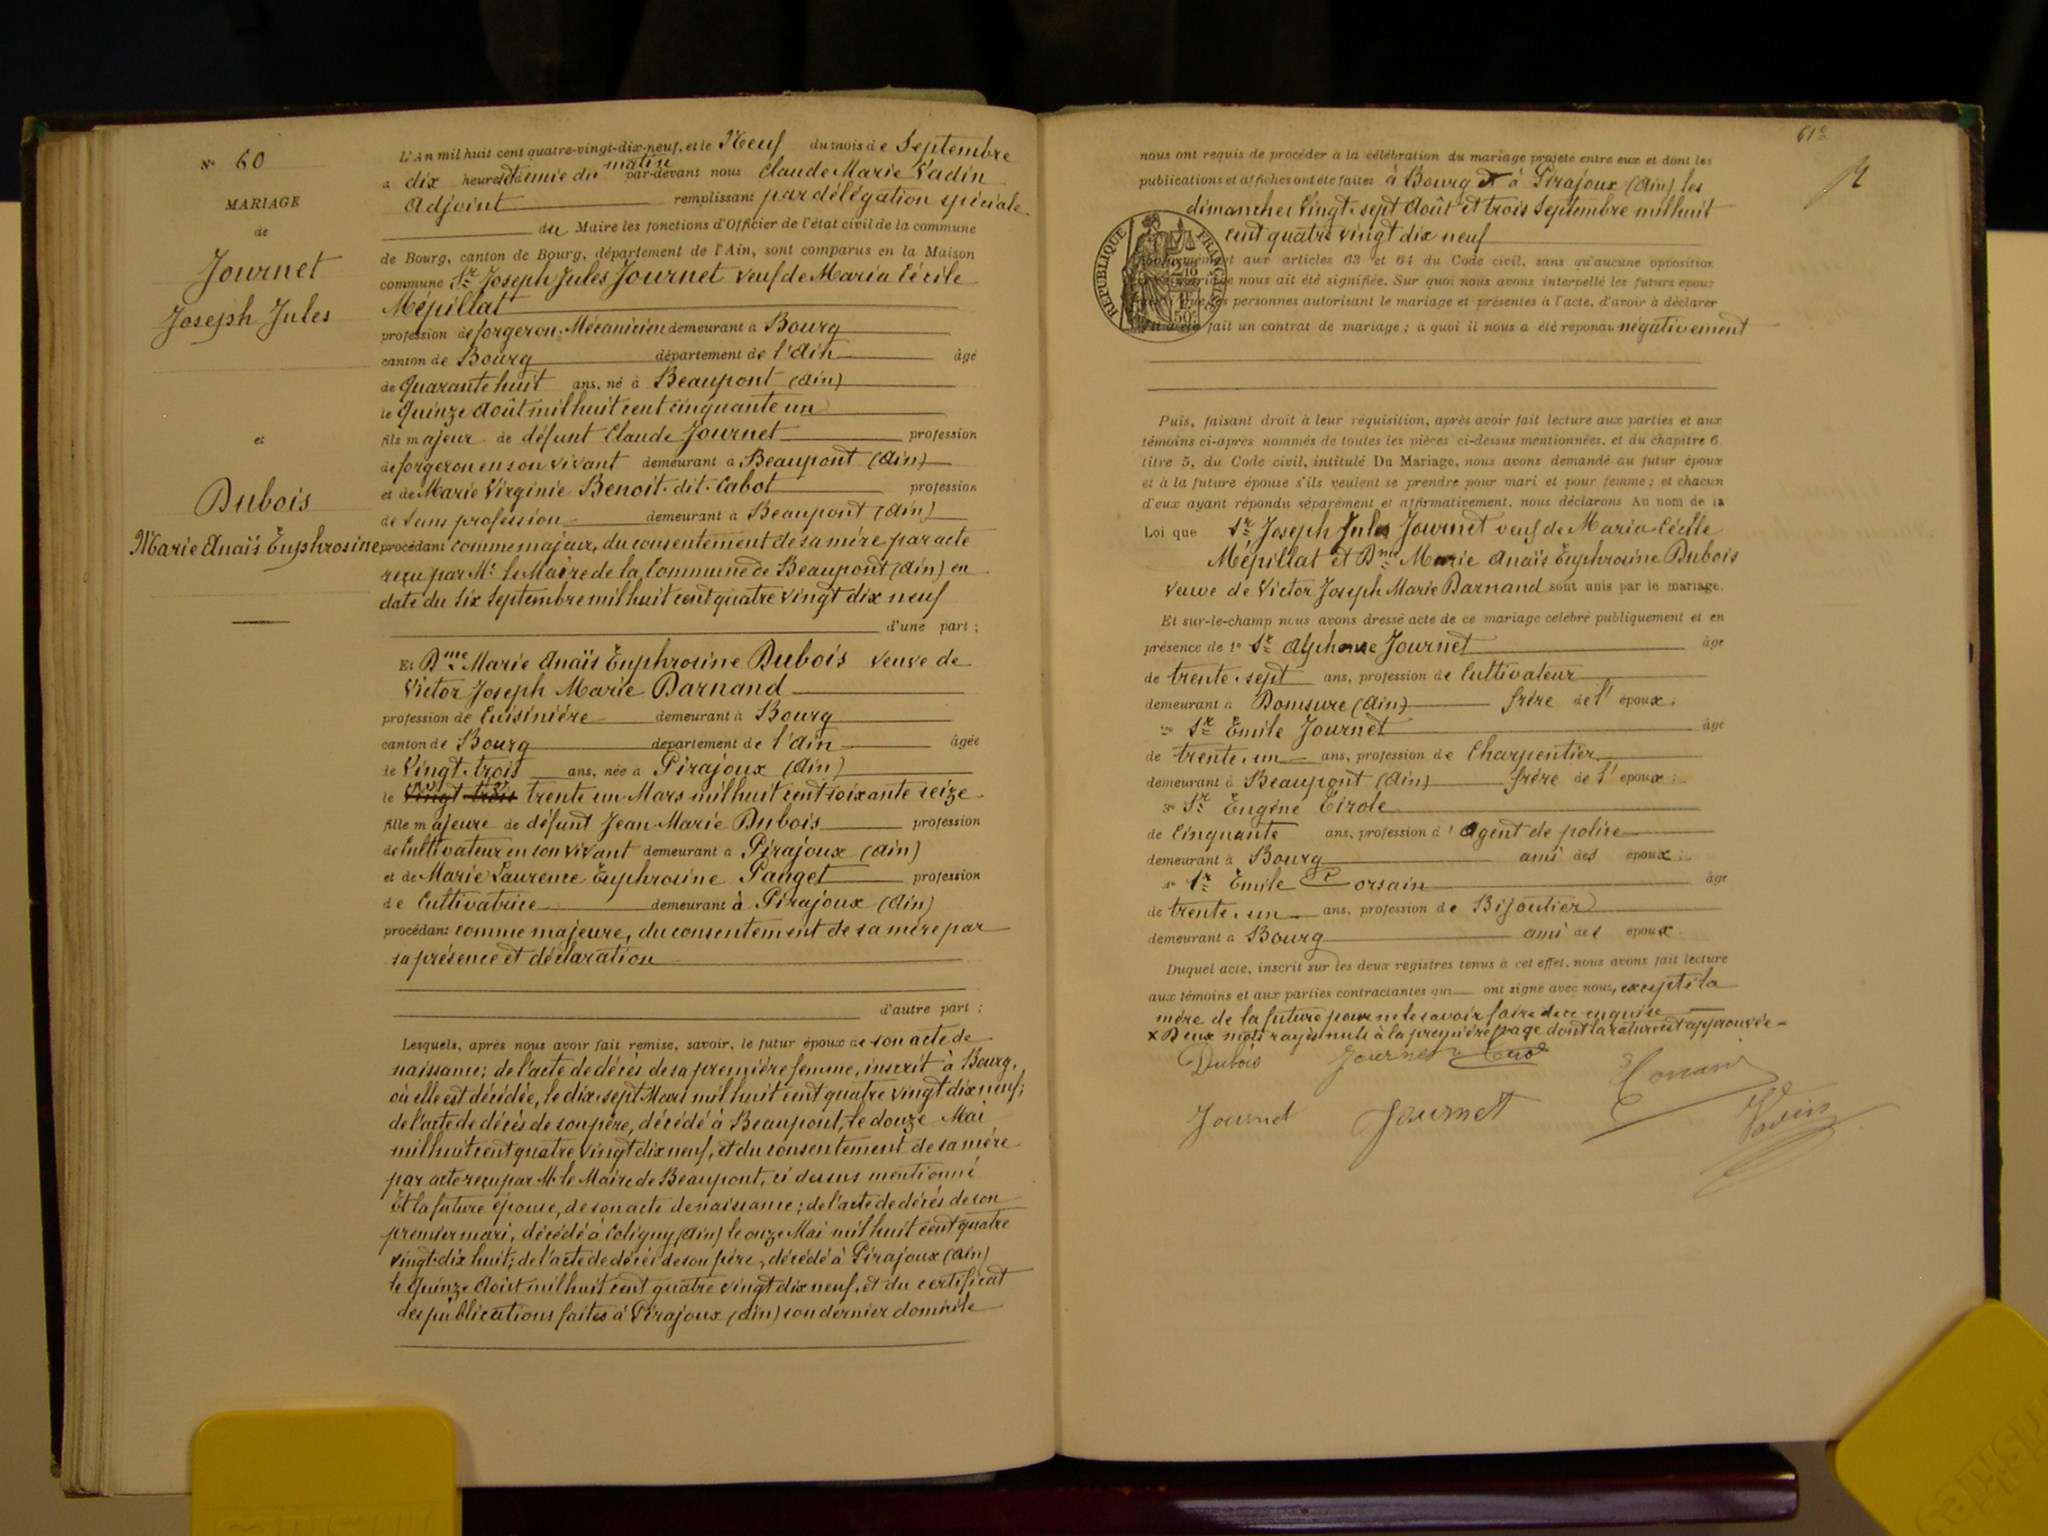 N° 60
MARIAGE
de
Journet
Joseph Jules
et
Dubois
Marie Anaïs Euphrosine
L'An mil huit cent quatre-vingt-dix-neuf, et le Neuf du mois de Septembre
à dix heures et demie du matin par-devant nous Claude Marie Vadin
Adjoint remplissant par délégation spéciale
du Maire les fonctions d'Officier de l'état civil de la commune
de Bourg, canton de Bourg, département de l'Ain, sont comparus en la Maison
commune Sr Joseph Jules Journet veuf de Maria Cécile
Mépillat
profession de forgeron-Mécanicien demeurant à Bourg
canton de Bourg département de l'Ain âgé
de Quarante huit ans, né à Beaupont (Ain)
le Quinze Août mil huit cent cinquante un
fils majeur de défunt Claude Journet profession
de forgeron en son vivant demeurant à Beaupont (Ain)
et de Marie Virginie Benoit-dit-Cabot profession
de Sans profession demeurant à Beaupont (Ain)
procédant comme majeur, du consentement de sa mère par acte
reçu par Mr le Maire de la Commune de Beaupont (Ain) en
date du Six Septembre mil huit cent quatre vingt dix neuf
d'une part ;
Et Dme Marie Anaïs Euphrosine Dubois veuve de
Victor Joseph Marie Darnand
profession de Cuisinière demeurant à Bourg
canton de Bourg département de l'Ain âgée
de Vingt-trois ans, née à Pirajoux (Ain)
le Vingt trois trente un Mars mil huit cent soixante seize
fille majeure de défunt Jean-Marie Dubois profession
de Cultivateur en son vivant demeurant à Pirajoux (Ain)
et de Marie Laurence Euphrosine Panget profession
de Cultivatrice demeurant à Pirajoux (Ain)
procédant comme majeure, du consentement de sa mère par
sa présence et déclaration
d'autre part ;
Lesquels, après nous avoir fait remise, savoir, le futur époux de son acte de
naissance ; de l'acte de décès de sa première femme, inscrit à Bourg,
où elle est décédée, le dix-sept Mars mil huit cent quatre vingt dix neuf ;
de l'acte de décès de son père, décédé à Beaupont, le douze Mai
mil huit cent quatre vingt dix neuf, et du consentement de sa mère
par acte reçu par Mr le Maire de Beaupont, ci dessus mentionné
Et la future épouse, de son acte de naissance ; de l'acte de décès de son
premier mari, décédé à Coligny (Ain) le onze Mai mil huit cent quatre
vingt-dix huit ; de l'acte de décès de son père, décédé à Pirajoux (Ain)
le Quinze Août mil huit cent quatre vingt dix neuf, et du certificat
des publications faites à Pirajoux (Ain) son dernier domicile
61e
nous ont requis de procéder à la célébration du mariage projeté entre eux et dont les
publications et affiches ont été faites à Bourg & à Pirajoux (Ain) les
dimanches Vingt-sept Août et trois Septembre mil huit
cent quatre vingt dix neuf
RÉPUBLIQUE FRANÇAISE
aux articles 63 et 64 du Code civil, sans qu'aucune opposition
nous ait été signifiée. Sur quoi nous avons interpellé les futurs époux
personnes autorisant le mariage et présentes à l'acte, d'avoir à déclarer
fait un contrat de mariage ; à quoi il nous a été répondu négativement
Puis, faisant droit à leur réquisition, après avoir fait lecture aux parties et aux
témoins ci-après nommés de toutes les pièces ci-dessus mentionnées, et du chapitre 6
titre 5, du Code civil, intitulé Du Mariage, nous avons demandé au futur époux
et à la future épouse s'ils veulent se prendre pour mari et pour femme ; et chacun
d'eux ayant répondu séparément et affirmativement, nous déclarons Au nom de la
Loi que Sr Joseph Jules Journet veuf de Maria Cécile
Mépillat et Dme Marie Anaïs Euphrosine Dubois
veuve de Victor Joseph Marie Darnand sont unis par le mariage.
Et sur-le-champ nous avons dressé acte de ce mariage célébré publiquement et en
présence de 1° Sr Alphonse Journet âgé
de trente-sept ans, profession de Cultivateur
demeurant à Domsure (Ain) frère de l'époux ;
2° Sr Emile Journet âgé
de trente-un ans, profession de Charpentier
demeurant à Beaupont (Ain) frère de l'époux ;
3° Sr Eugène Tirole
de Cinquante ans, profession d'Agent de police
demeurant à Bourg ami des époux ;
4° Sr Emile Corsain âgé
de trente-un ans, profession de Bijoutier
demeurant à Bourg ami des époux.
Duquel acte, inscrit sur les deux registres tenus à cet effet, nous avons fait lecture
aux témoins et aux parties contractantes qui ont signé avec nous, excepté la
mère de la future pour ne le savoir faire de ce enquise
x Deux mots rayés nuls à la première page dont la rature est approuvée
Dubois Journet
Journet Journet Vadin